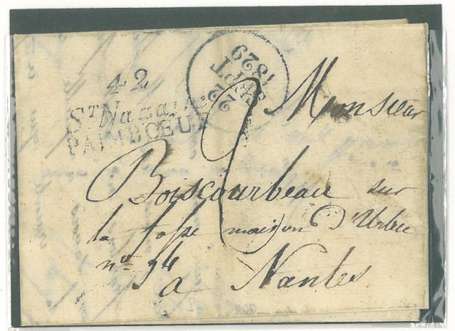 42
St Nazaire
PAIMBOEUF
22
SEPT
1829
2
Monsieur
Boiscourbeau sur
la fosse maison d'Urbec
nº 34
a Nantes